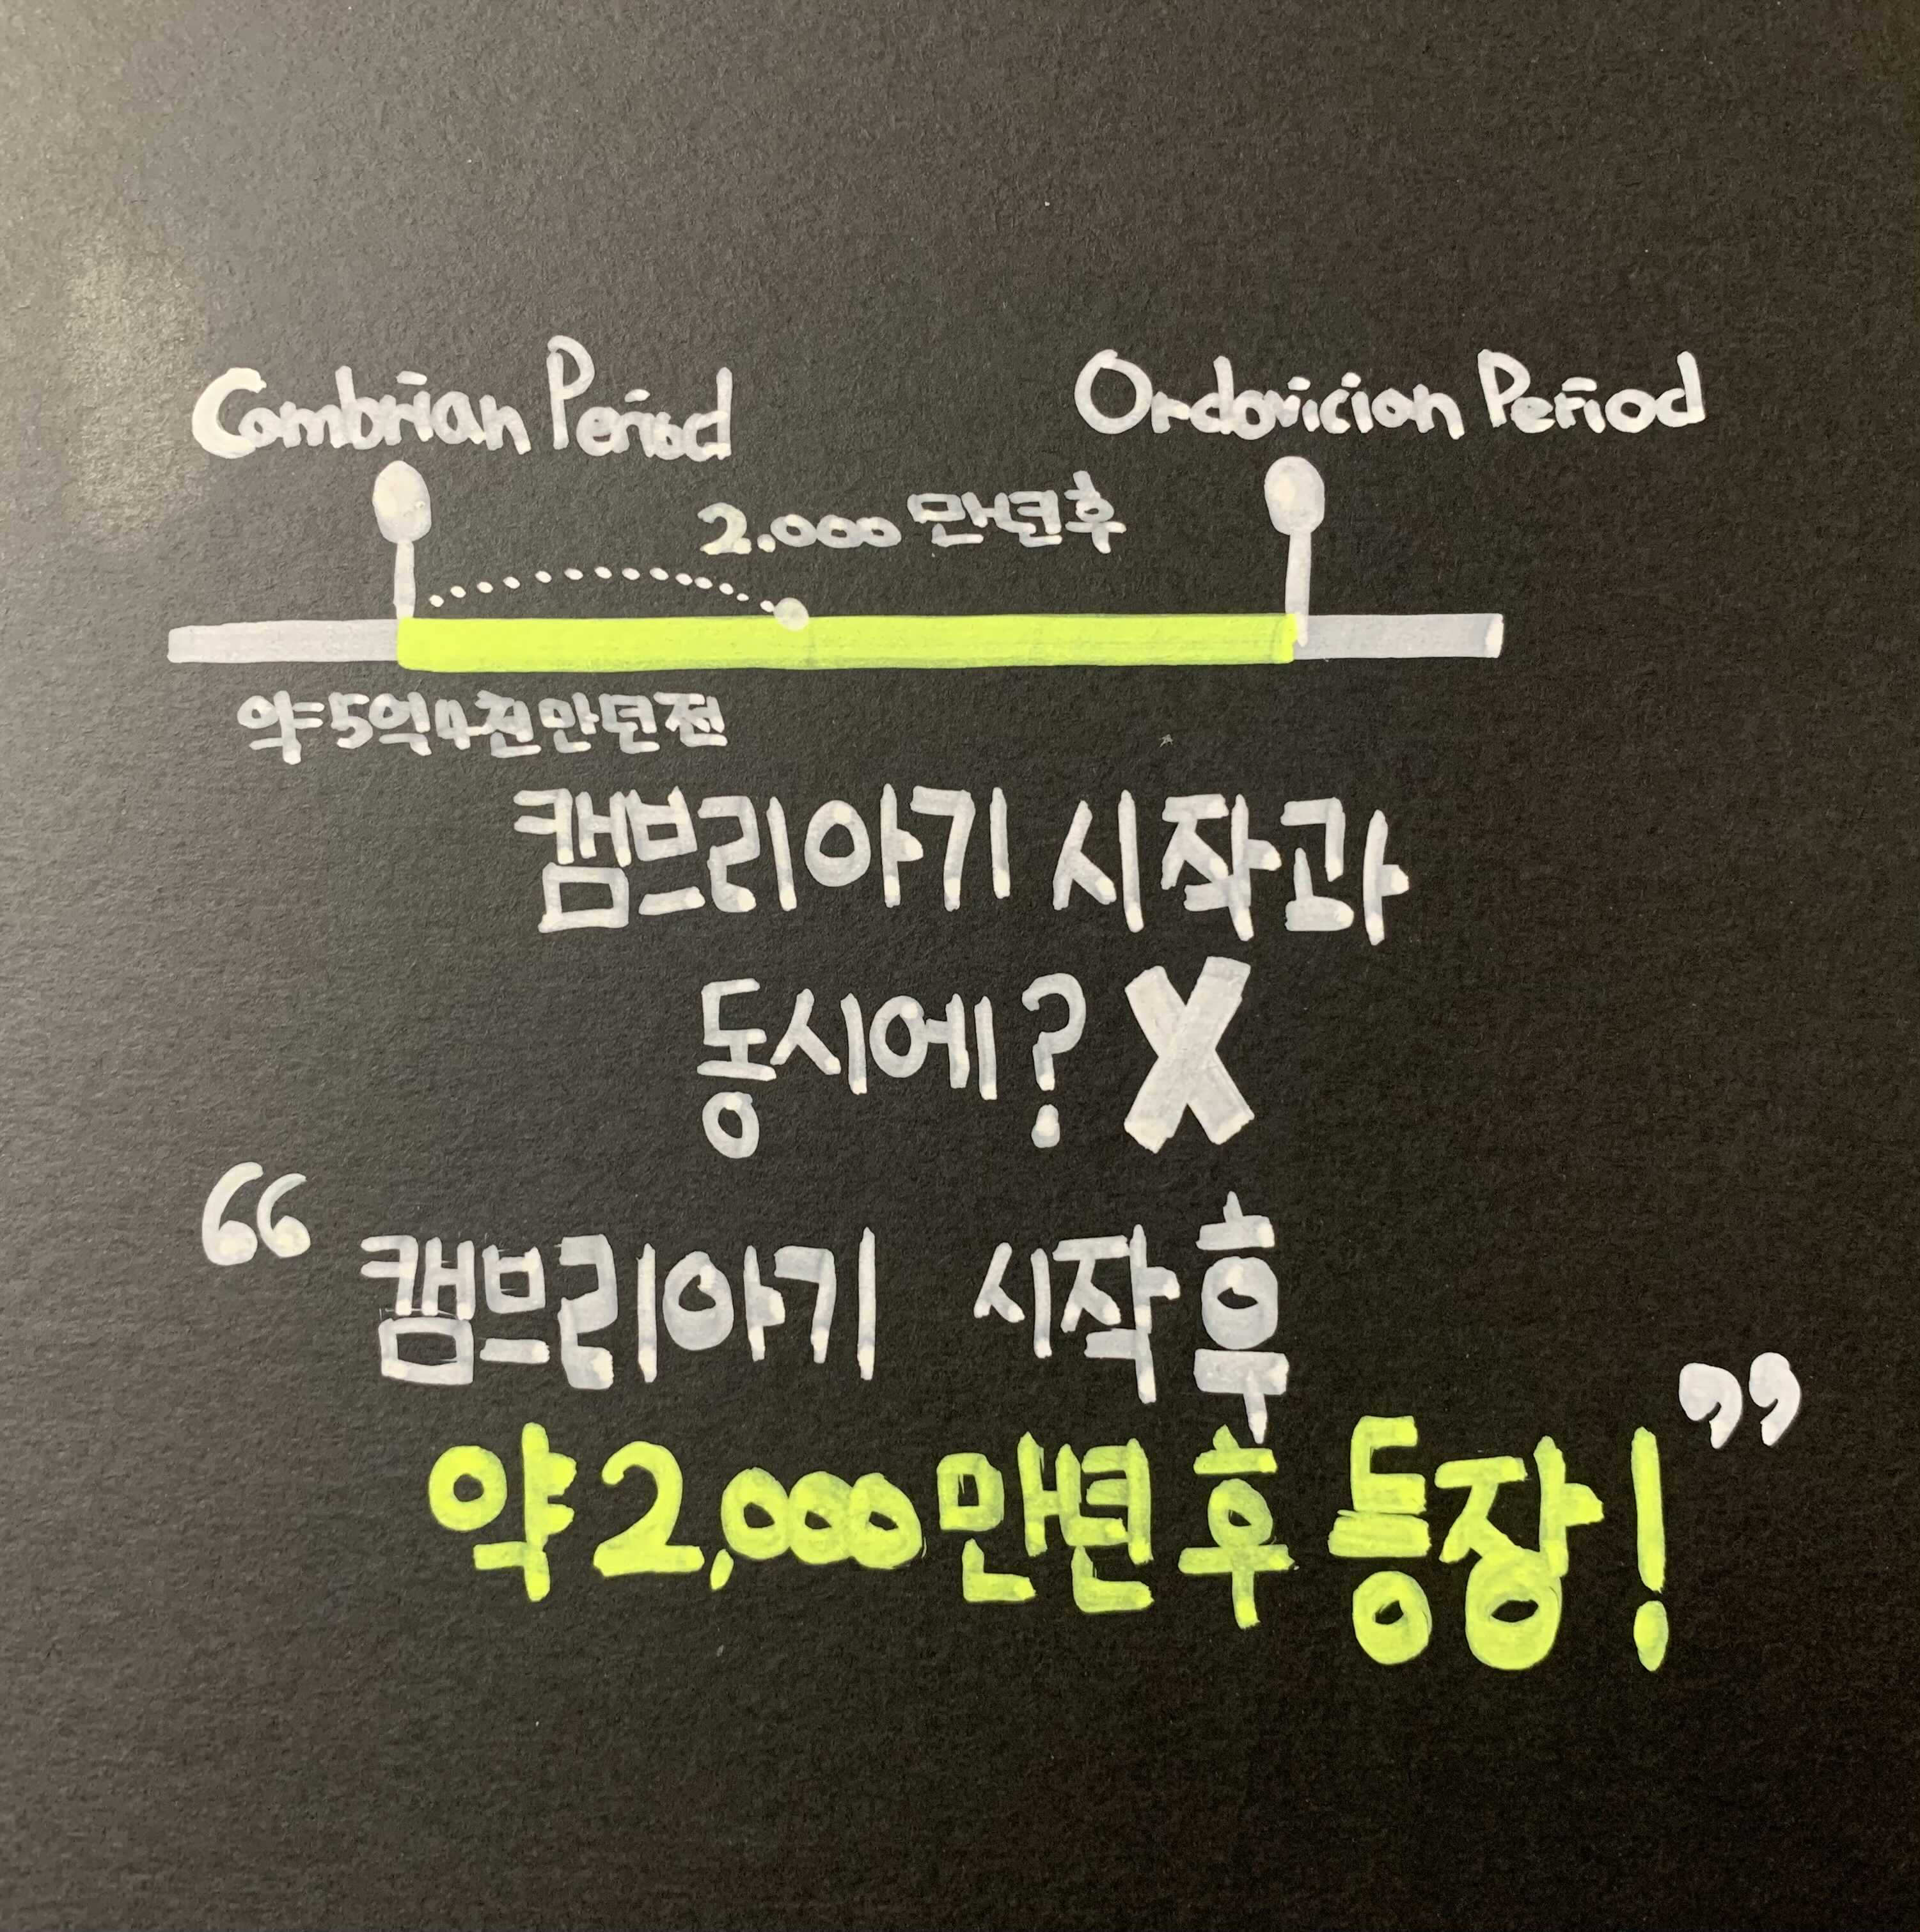 Cambrian Period
Ordovician Period
2.000만년후
약5억4천만년전
캄브리아기 시작과
동시에? X
“ 캄브리아기 시작 후
약 2,000만년 후 등장! ”